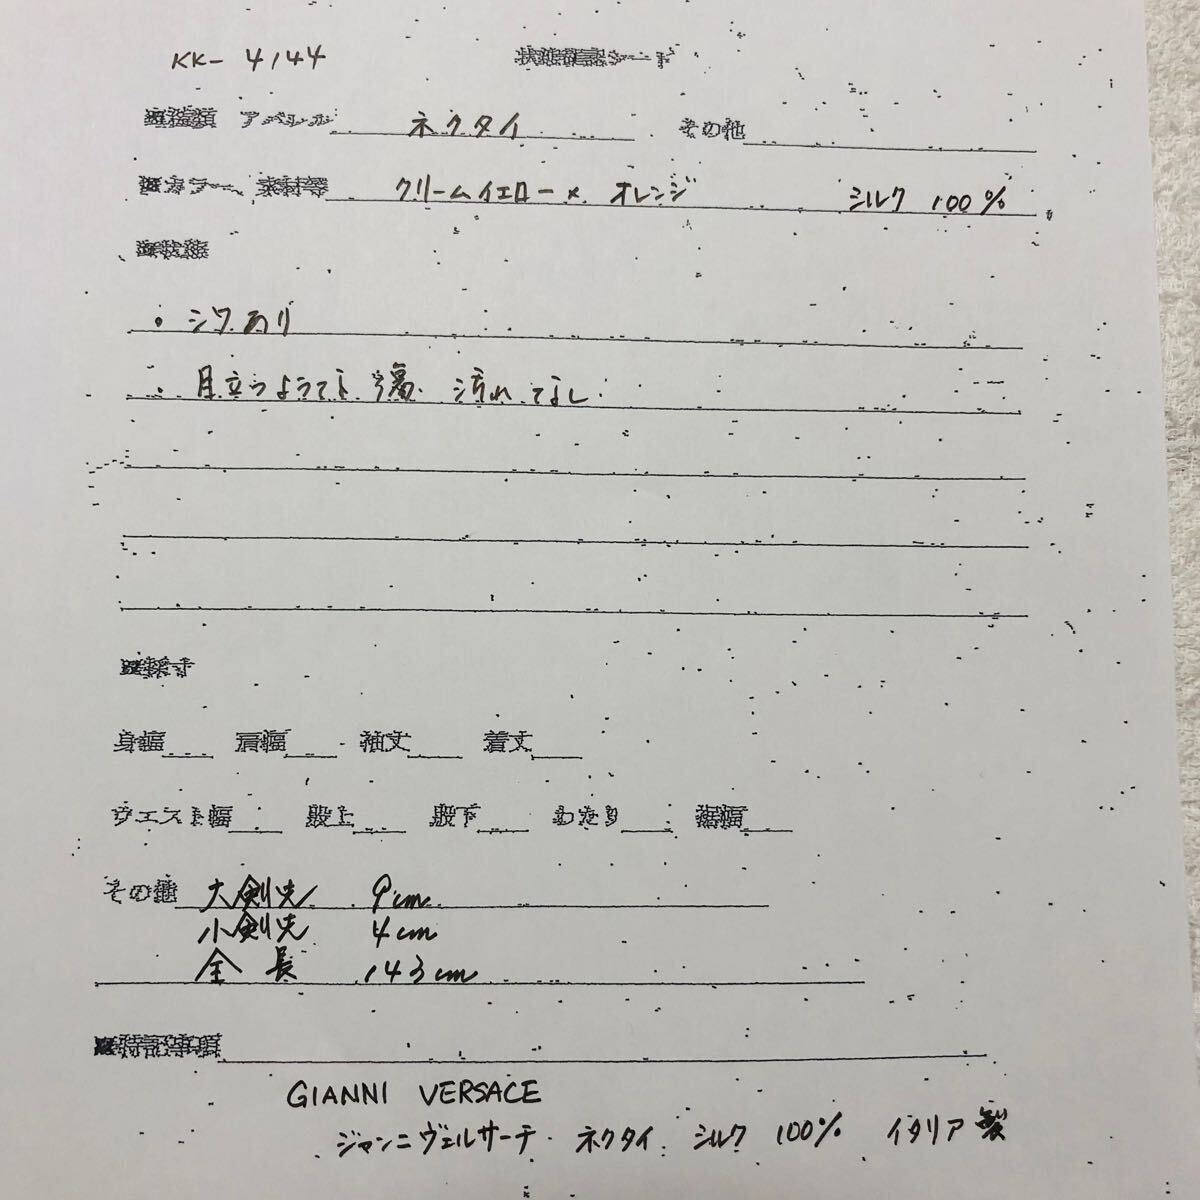 KK- 4144 状態確認シート
■種類 アパレル ネクタイ その他
■カラー、素材等 クリームイエロー× オレンジ シルク 100%
■状態
・シワあり
・目立つような傷・汚れなし.
■採寸
身幅 肩幅 袖丈 着丈
ウエスト幅 股上 股下 わたり 裾幅
その他 大剣先 9cm
小剣先 4cm
全長 143cm
■特記事項
GIANNI VERSACE
ジャンニヴェルサーチ ネクタイ シルク 100% イタリア製